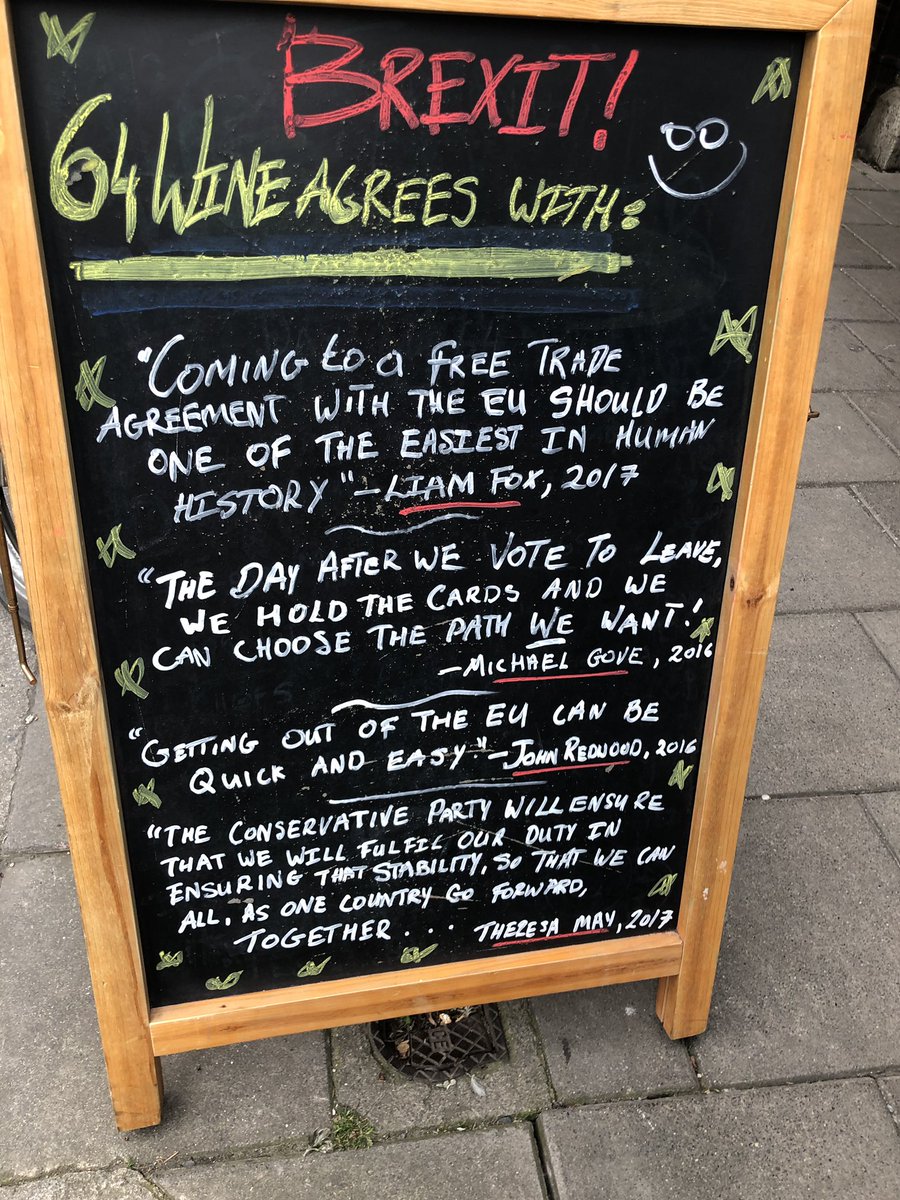 BREXIT!
64 WINE AGREES WITH:
"COMING to a FREE TRADE
AGREEMENT WITH THE EU SHOULD BE
ONE OF THE EASIEST IN HUMAN
HISTORY" - LIAM FOX, 2017
"THE DAY AFTER WE VOTE TO LEAVE,
WE HOLD THE CARDS AND WE
CAN CHOOSE THE PATH WE WANT!
- MICHAEL GOVE, 2016
"GETTING OUT OF THE EU CAN BE
QUICK AND EASY" - JOHN REDWOOD, 2016
"THE CONSERVATIVE PARTY WILL ENSURE
THAT WE WILL FULFIL OUR DUTY IN
ENSURING THAT STABILITY, SO THAT WE CAN
ALL, AS ONE COUNTRY GO FORWARD,
TOGETHER .... THERESA MAY, 2017